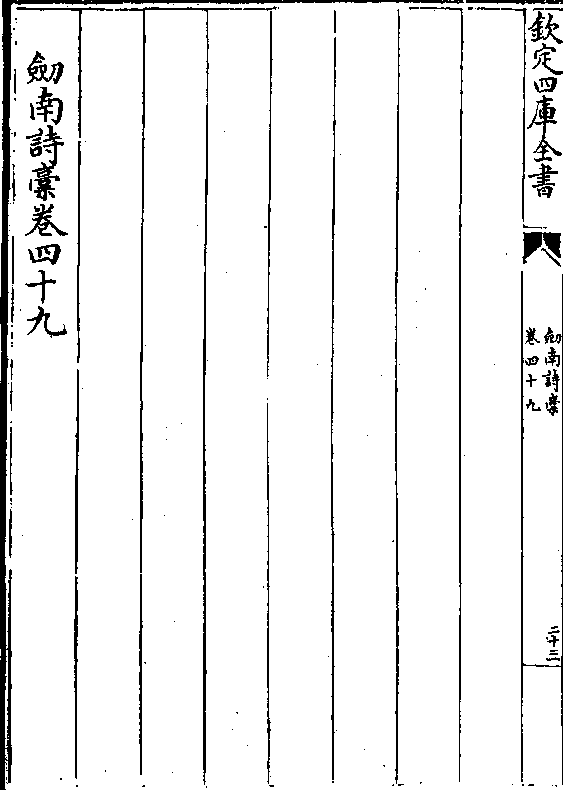 欽定四庫全書
劒南詩稾
卷四十九
二十三
劒南詩稾卷四十九